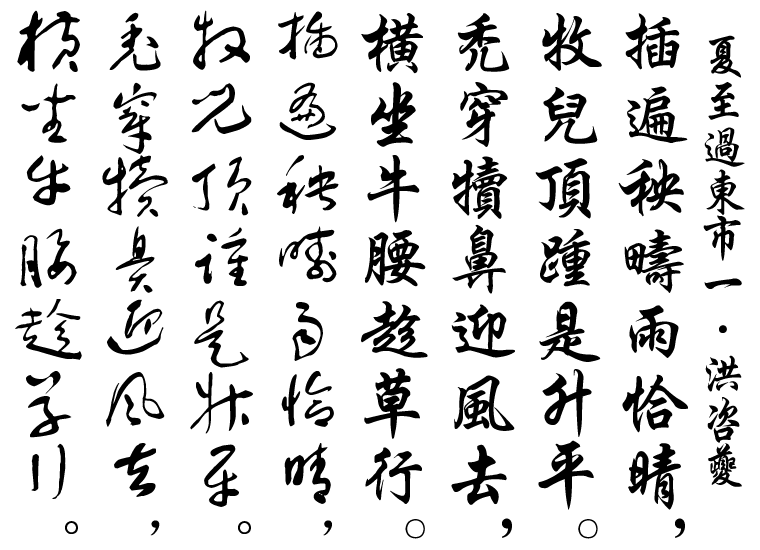 夏至過東市一·洪咨夔
插遍秧疇雨恰晴,
牧兒頂踵是升平。
禿穿犢鼻迎風去,
橫坐牛腰趁草行。
插遍秧疇雨恰晴,
牧兒頂踵是升平。
禿穿犢鼻迎風去,
橫坐牛腰趁草行。